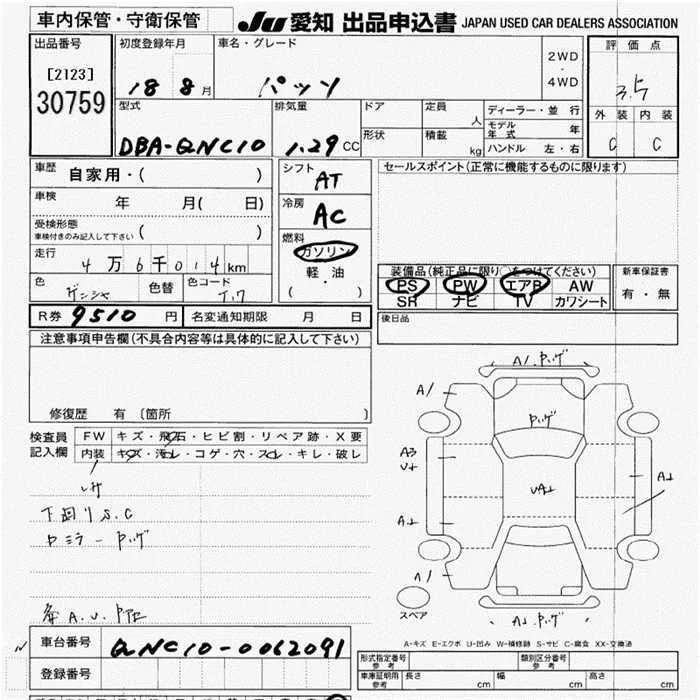 車内保管・守衛保管
JU 愛知 出品申込書 JAPAN USED CAR DEALERS ASSOCIATION
出品番号
[2123]
30759
初度登録年月
18 8月
車名・グレード
パッソ
2WD
・
4WD
評価点
3.5
外装 内装
C C
型式
DBA-QNC10
排気量
1.29 CC
ドア
形状
定員
人
積載
kg
ディーラー・並行
モデル年式 年
ハンドル 左・右
車歴 自家用・( )
車検 年 月( 日)
受検形態
車検付きのみ記入して下さい ( )
走行
4万6千014km
色
色替
色コード
シフト
AT
冷房
AC
燃料
ガソリン
軽・油
( )
セールスポイント(正常に機能するものに限ります)
装備品(純正品に限り○をつけてください)
PS PW エアB AW
SR ナビ TV カワシート
新車保証書
有・無
R券 9510 円
名変通知期限 月 日
後日品
注意事項申告欄(不具合内容等は具体的に記入して下さい)
修復歴 有 〔箇所 〕
検査員記入欄
FW キズ・飛石・ヒビ割・リペア跡・X要
内装 キズ・汚レ・コゲ・穴・スレ・キレ・破レ
下回りS.C
A1
A1
A3
A1
スペア
A-キズ E-エクボ U-凹み W-補修跡 S-サビ C-腐食 XX-交換済
車台番号
QNC10-0062091
登録番号
形式指定番号
参考
類別区分番号
参考
車庫証明用
参考
長さ cm
幅 cm
高さ cm